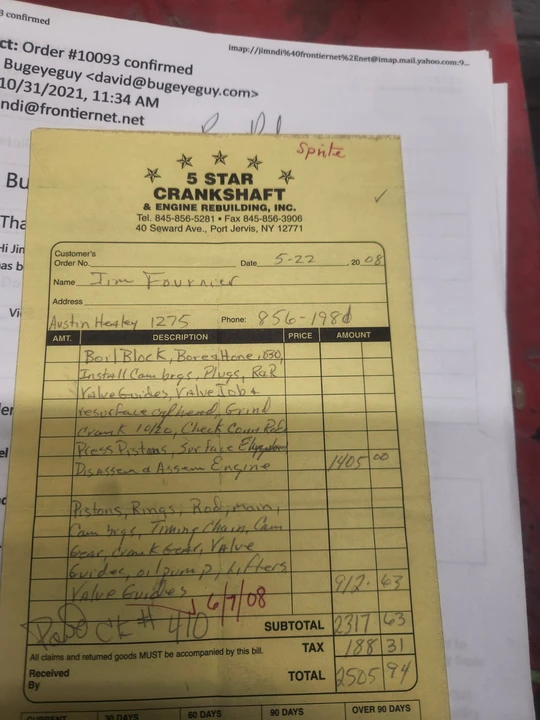 3 confirmed
imap://jimndi%40frontiernet%2Enet@imap.mail.yahoo.com:9...
ct: Order #10093 confirmed
Bugeyeguy <david@bugeyeguy.com>
10/31/2021, 11:34 AM
ndi@frontiernet.net
Sprite
5 STAR
CRANKSHAFT
& ENGINE REBUILDING, INC.
Tel. 845-856-5281 • Fax 845-856-3906
40 Seward Ave., Port Jervis, NY 12771
Bu
Tha
Hi Jin
as b
Vi
Customer's
Order No. Date 5-22 2008
Name Jim Fournier
Address
Austin Healey 1275 Phone: 856-1980
AMT. DESCRIPTION PRICE AMOUNT
Boil Block, Bore & Hone .030,
Install Cam brgs, Plugs, R&R
Valve Guides, Valve Job &
resurface cyl head, Grind
Crank 10/20, Check Conn Rods
Press Pistons, Surface Flywheel
Disassem & Assem Engine 1405 00
Pistons, Rings, Rod, main,
Cam brgs, Timing Chain, Cam
Gear, Crank Gear, Valve
Guides, oil pump, Lifters
Value Guides 912. 63
6/7/08
Paid CK # 410
SUBTOTAL 2317 63
TAX 188 31
All claims and returned goods MUST be accompanied by this bill.
TOTAL 2505 94
Received
By
CURRENT 30 DAYS 60 DAYS 90 DAYS OVER 90 DAYS